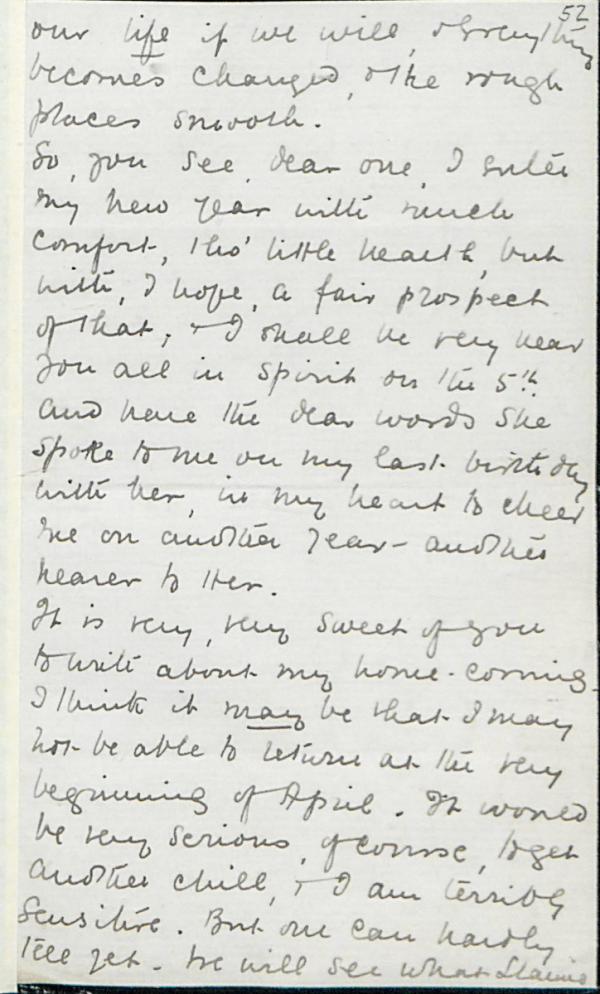 52
our life if we will, & everything
becomes changed, & the rough
places smooth.
So, you see, dear one, I enter
my new year with much
comfort, tho' little health, but
with, I hope, a fair prospect
of that; & I shall be very near
you all in spirit on the 5th.
and have the dear words she
spoke to me on my last birthday
with her, in my heart to cheer
me on another year - another
nearer to Her.
It is very, very sweet of you
to write about my home-coming.
I think it may be that I may
not be able to return at the very
beginning of April. It would
be very serious, of course, to get
another chill, & I am terribly
sensitive. But one can hardly
tell yet. We will see what